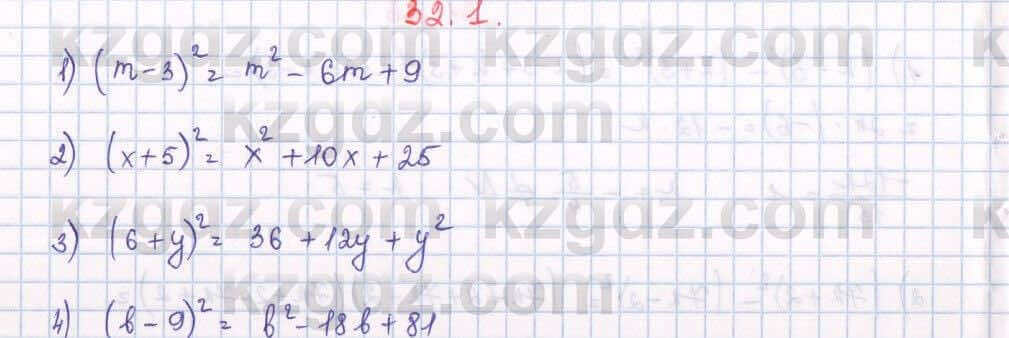 32.1.
kzgdz.com kzgdz.com
1) (m-3)²= m² - 6m + 9
kzgdz.com
2) (x+5)²= x² + 10x + 25
kzgdz.com kzgdz.com
3) (6+y)²= 36 + 12y + y²
kzgdz.com
4) (b-9)²= b² - 18b + 81